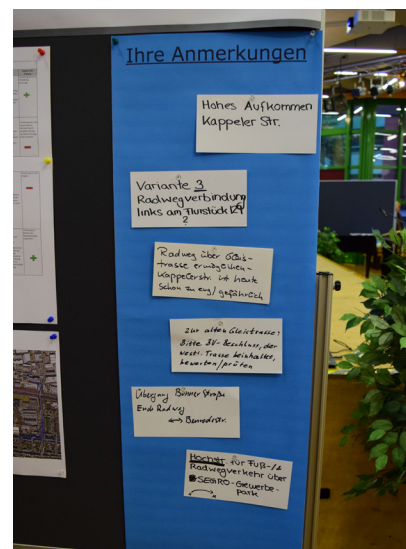 Ihre Anmerkungen
Hohes Aufkommen
Kappeler Str.
Variante 3
Radwegverbindung
links am Flurstück
?
Radweg über Gleis-
trasse ermöglichen -
Kappelerstr. ist heute
schon zu eng/gefährlich
Zur alten Gleistrasse:
Bitte BV-Beschluss, der
westl. Trasse beinhaltet,
bewerten/prüfen
Übergang Bonner Straße
Ende Radweg
↔ Benrodestr.
Hochstr. für Fuß-/&
Radwegverkehr über
SEGRO-Gewerbe-
park